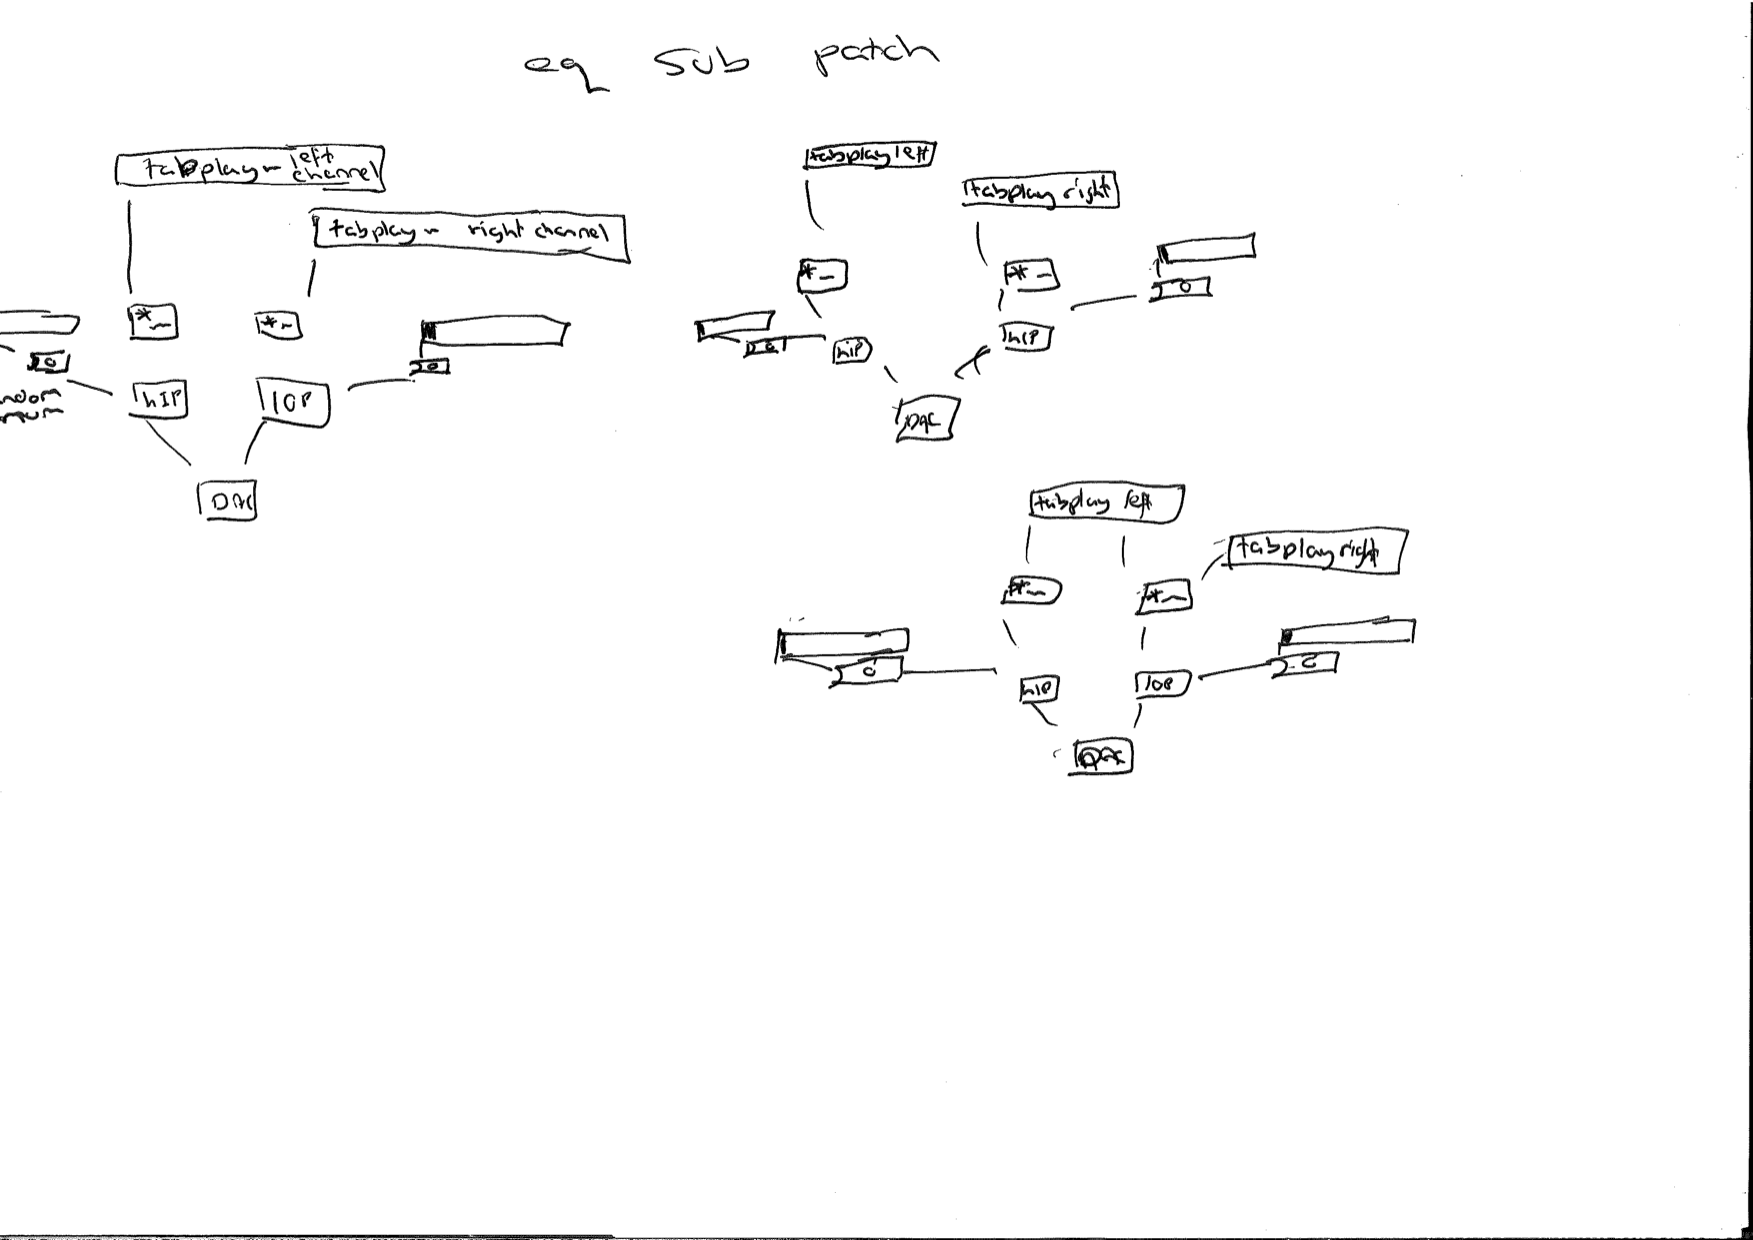 eq sub patch
tabplay~ left
channel
tabplay~ right channel
*~
*~
0
0
hIP
lOP
DAC
tabplay left
tabplay right
*~
*~
0
0
hiP
hIP
DAC
tabplay left
tabplay right
*~
*~
0
0
hIP
lOP
DAC